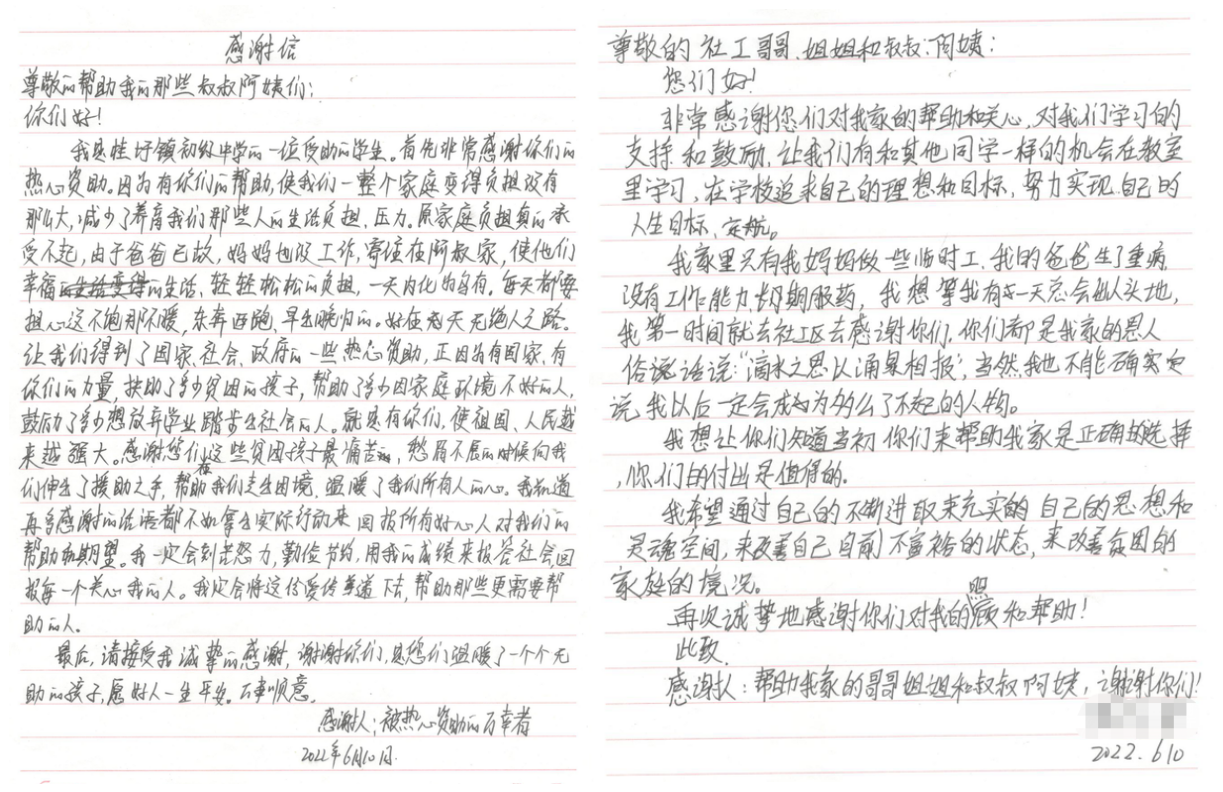 感谢信
尊敬的帮助我的那些叔叔阿姨们：
你们好！
我是桂圩镇初级中学的一位受助的学生。首先非常感谢你们的
热心资助。因为有你们的帮助，使我们一整个家庭变得负担没有
那么大，减少了养育我们那些人的生活负担、压力。原家庭负担真的承
受不起，由于爸爸已故，妈妈也没工作，寄住在阿叔家，使他们
幸福的生活、轻轻松松的负担，一天内化为乌有。每天都要
担心这不饱那不暖，东奔西跑，早出晚归的。好在老天无绝人之路。
让我们得到了国家、社会、政府的一些热心资助，正因为有国家、有
你们的力量，扶助了多少贫困的孩子，帮助了多少因家庭环境不好的人，
鼓励了多少想放弃学业踏步出社会的人。就是有你们，使祖国、人民越
来越强大。感谢您们在这些贫困孩子最痛苦的，愁眉不展的时候向我
们伸出了援助之手，帮助我们走出困境，温暖了我们所有人的心。我知道
再多感谢的话语都不如拿出实际行动来回报所有好心人对我们的
帮助和期望。我一定会刻苦努力，勤俭节约，用我的成绩来报答社会，回
报每一个关心我的人。我定会将这份爱传道下去，帮助那些更需要帮
助的人。
最后，请接受我诚挚的感谢，谢谢你们，是您们温暖了一个个无
助的孩子，愿好人一生平安。万事顺意。
感谢人：被热心资助的万幸者
2022年6月10日.
尊敬的社工哥哥、姐姐和叔叔、阿姨：
您们好！
非常感谢您们对我家的帮助和关心，对我们学习的
支持和鼓励，让我们有和其他同学一样的机会在教室
里学习，在学校追求自己的理想和目标，努力实现自己的
人生目标、定航。
我家里只有我妈妈做一些临时工，我的爸爸生了重病
没有工作能力，长期服药，我想等我有一天总会出人头地，
我第一时间就去社工区去感谢你们，你们都是我家的恩人
俗说话说：“滴水之恩以涌泉相报”，当然我也不能确实定
说，我以后一定会成为多么了不起的人物。
我想让你们知道当初你们来帮助我家是正确的选择
，你们的付出是值得的。
我希望通过自己的不断进取来充实的自己的思想和
灵魂空间，来改善自己目前不富裕的状态，来改善贫困的
家庭的境况。
再次诚挚地感谢你们对我的照顾和帮助！
此致.
感谢人：帮助我家的哥哥姐姐和叔叔阿姨，谢谢你们！
2022.6.10